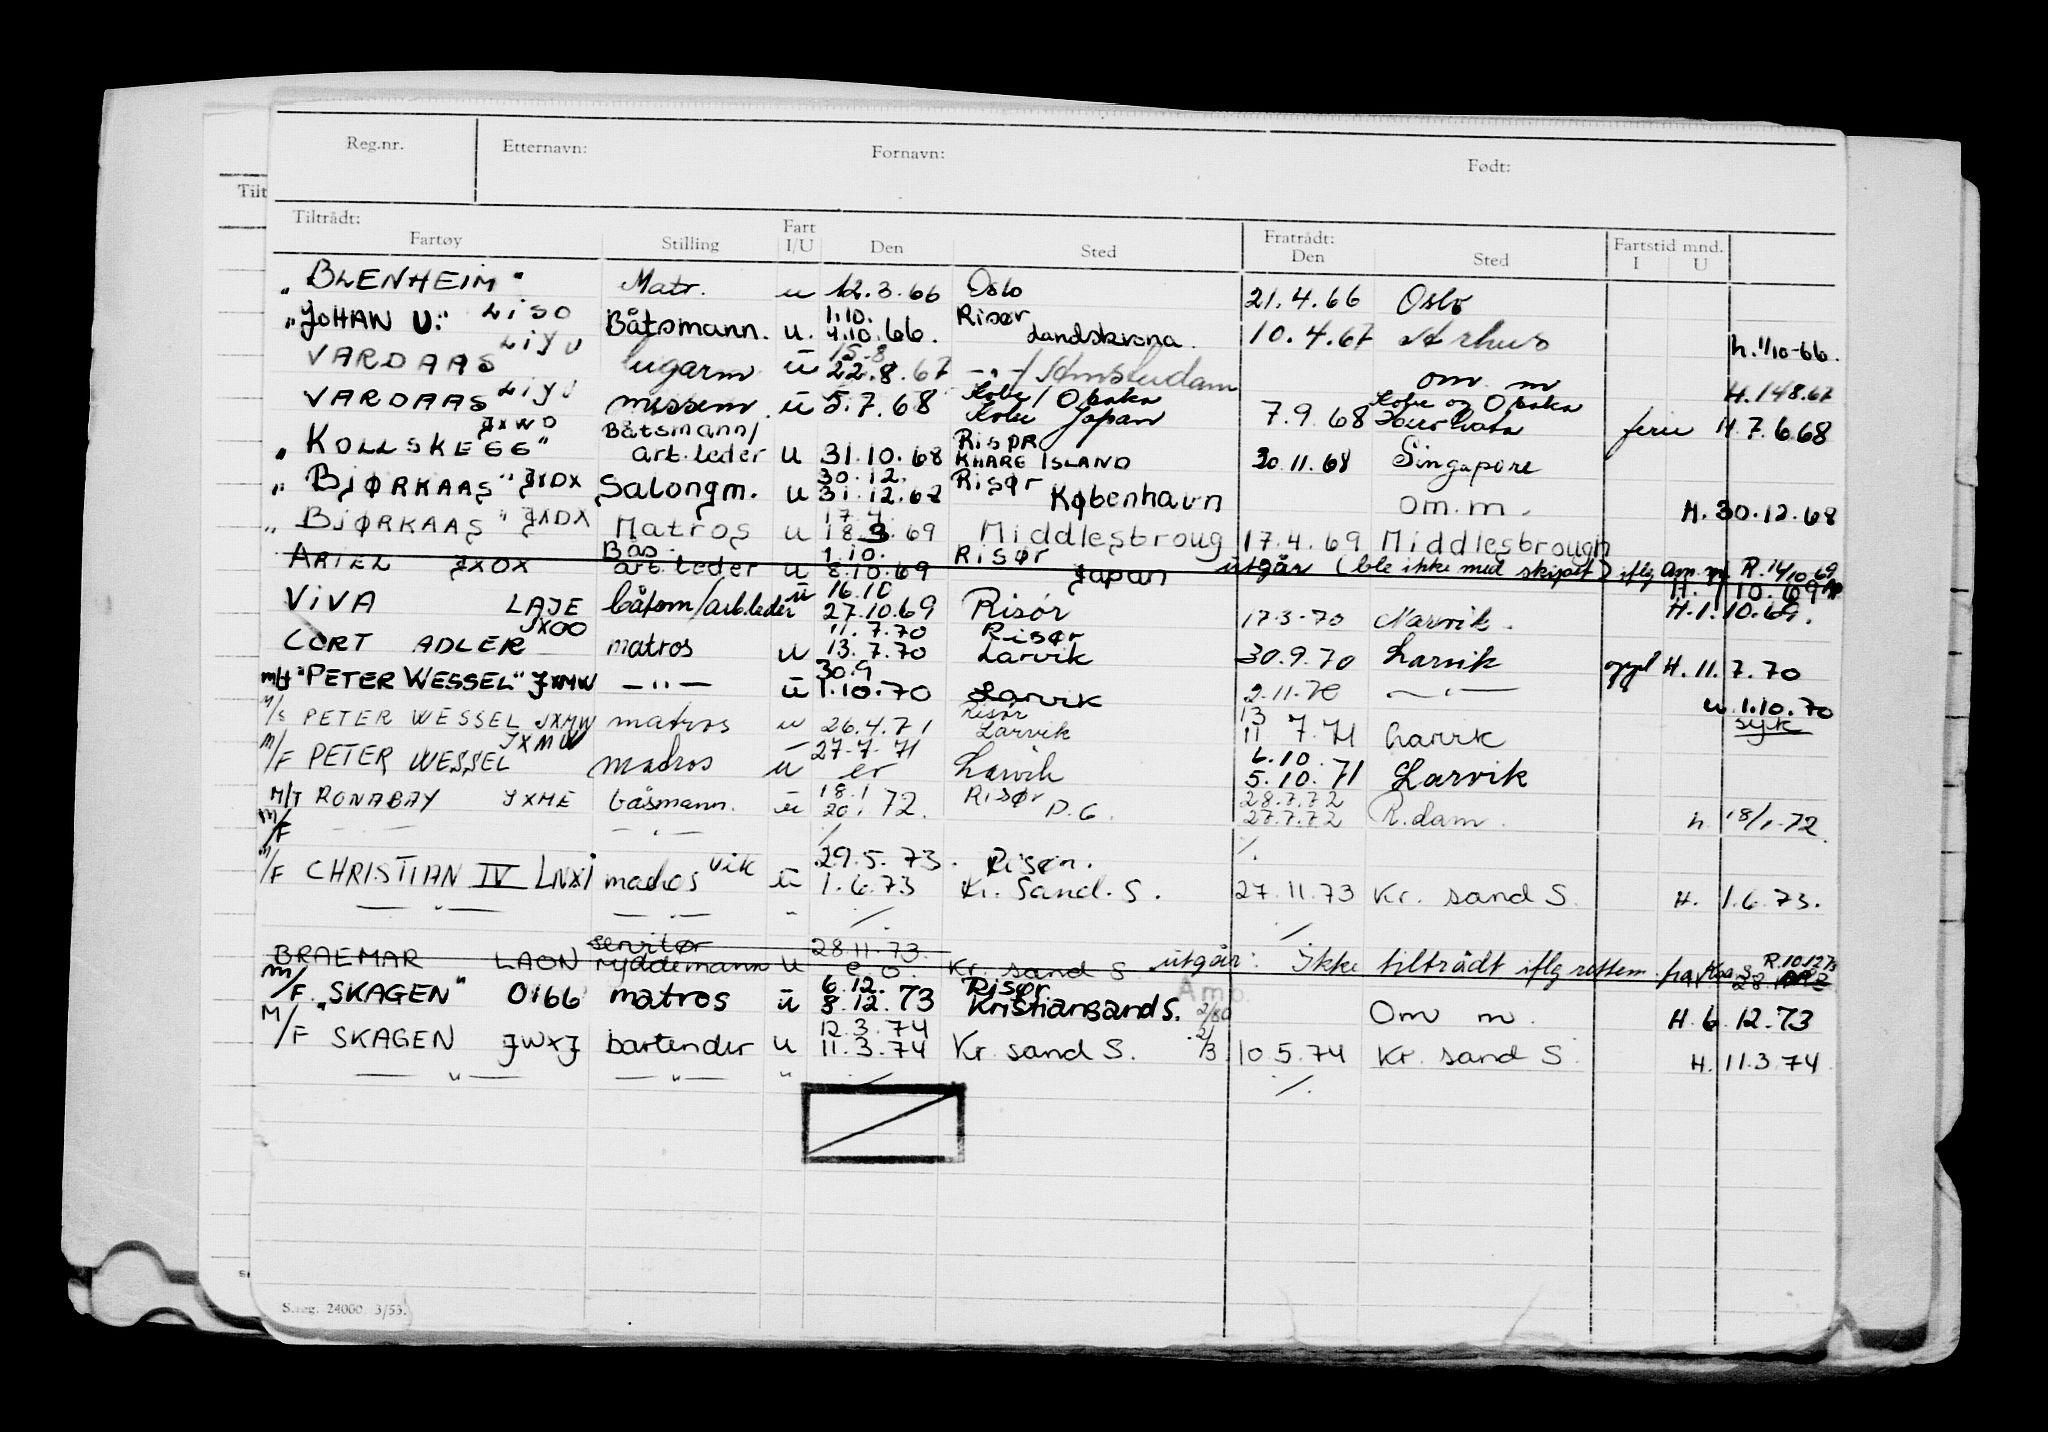 Reg.nr. Etternavn: Fornavn: Født:
Tilt
Tiltrådt: Fart Fratrådt: Fartstid mnd.
Fartøy Stilling I/U Den Sted Den Sted I U
"BLENHEIM" Matr. u 12.3.66 Oslo 21.4.66 Oslo
LISO 1.10. Risør
"JOHAN U." Båtsmann. u. 4.10.66. Landskrona. 10.4.67 Århus h. 1/10-66.
LIJU 15.8
VARDAAS lugarm ū 22.8.67 -"-/Amsterdam om. m H. 148.67
LIJU Kobe/Osaka Kobe og Osaka
VARDAAS messem ū 5.7.68 Kobe Japan 7.9.68 ferie H.7.6.68
JXWO Båtsmann/ RISØR
"KOLLSKEGG" arb.leder u 31.10.68 KHARG ISLAND 30.11.68 Singapore
30.12. Risør
"BJØRKAAS" JXDX Salongm. u 31.12.68 København om.m. H.30.12.68
17.4
"BJØRKAAS" JXDX Matros u 18.3.69 Middlesbroug 17.4.69 Middlesbrough
Bås. 1.10. Risør
ARIEL JXOX arb.leder u 8.10.69 Japan utgår (ble ikke med skipet) iflg am.m R.14/10.69
16.10 H.1.10.69
VIVA LAJE båtsm/arb.leder ū 27.10.69 Risör 17.3.70 Narvik. H.1.10.69.
JXOO 11.7.70 Risør
CORT ADLER matros u 13.7.70 Larvik 30.9.70 Larvik oppl H.11.7.70
30.9
m/f "PETER WESSEL" JXMW -"- ū 1.10.70 Larvik 2.11.70 -"- u.1.10.70
Risør 13 syk
M/S PETER WESSEL JXMW matros u 26.4.71 Larvik 11 7.71 Larvik
JXMW 27.7.71 6.10.
M/F PETER WESSEL matros u er Larvik 5.10.71 Larvik
18.1 Risør 28.7.72
M/T RONABAY JXME båsmann. ū 20. 72. P.G. 27.7.72 R.dam. h. 18/1.72.
M/F - - -"- ./. ./.
vik 29.5.73. Risør.
M/F CHRISTIAN IV LNXI matros ū 1.6.73 Kr. Sand. S. 27.11.73 Kr. sand S. H. 1.6.73.
-"- -"- " ./. ./.
servitør 28.11.73.
BRAEMAR LAON ryddemann u e.o. Kr. sand S utgår: Ikke tiltrådt iflg rettem. fra R.10.12.73
6.12. Risør Amb.
M/F. "SKAGEN" 0166 matros ū 8.12.73 Kristiansand S. 2/80 Om m. H.6.12.73
12.3.74
M/F SKAGEN JWXJ bartender u 11.3.74 Kr. sand S. 2/3 10.5.74 Kr. sand S. H. 11.3.74
-"- -"- " ./. ./.
S.reg. 24000 3/53.